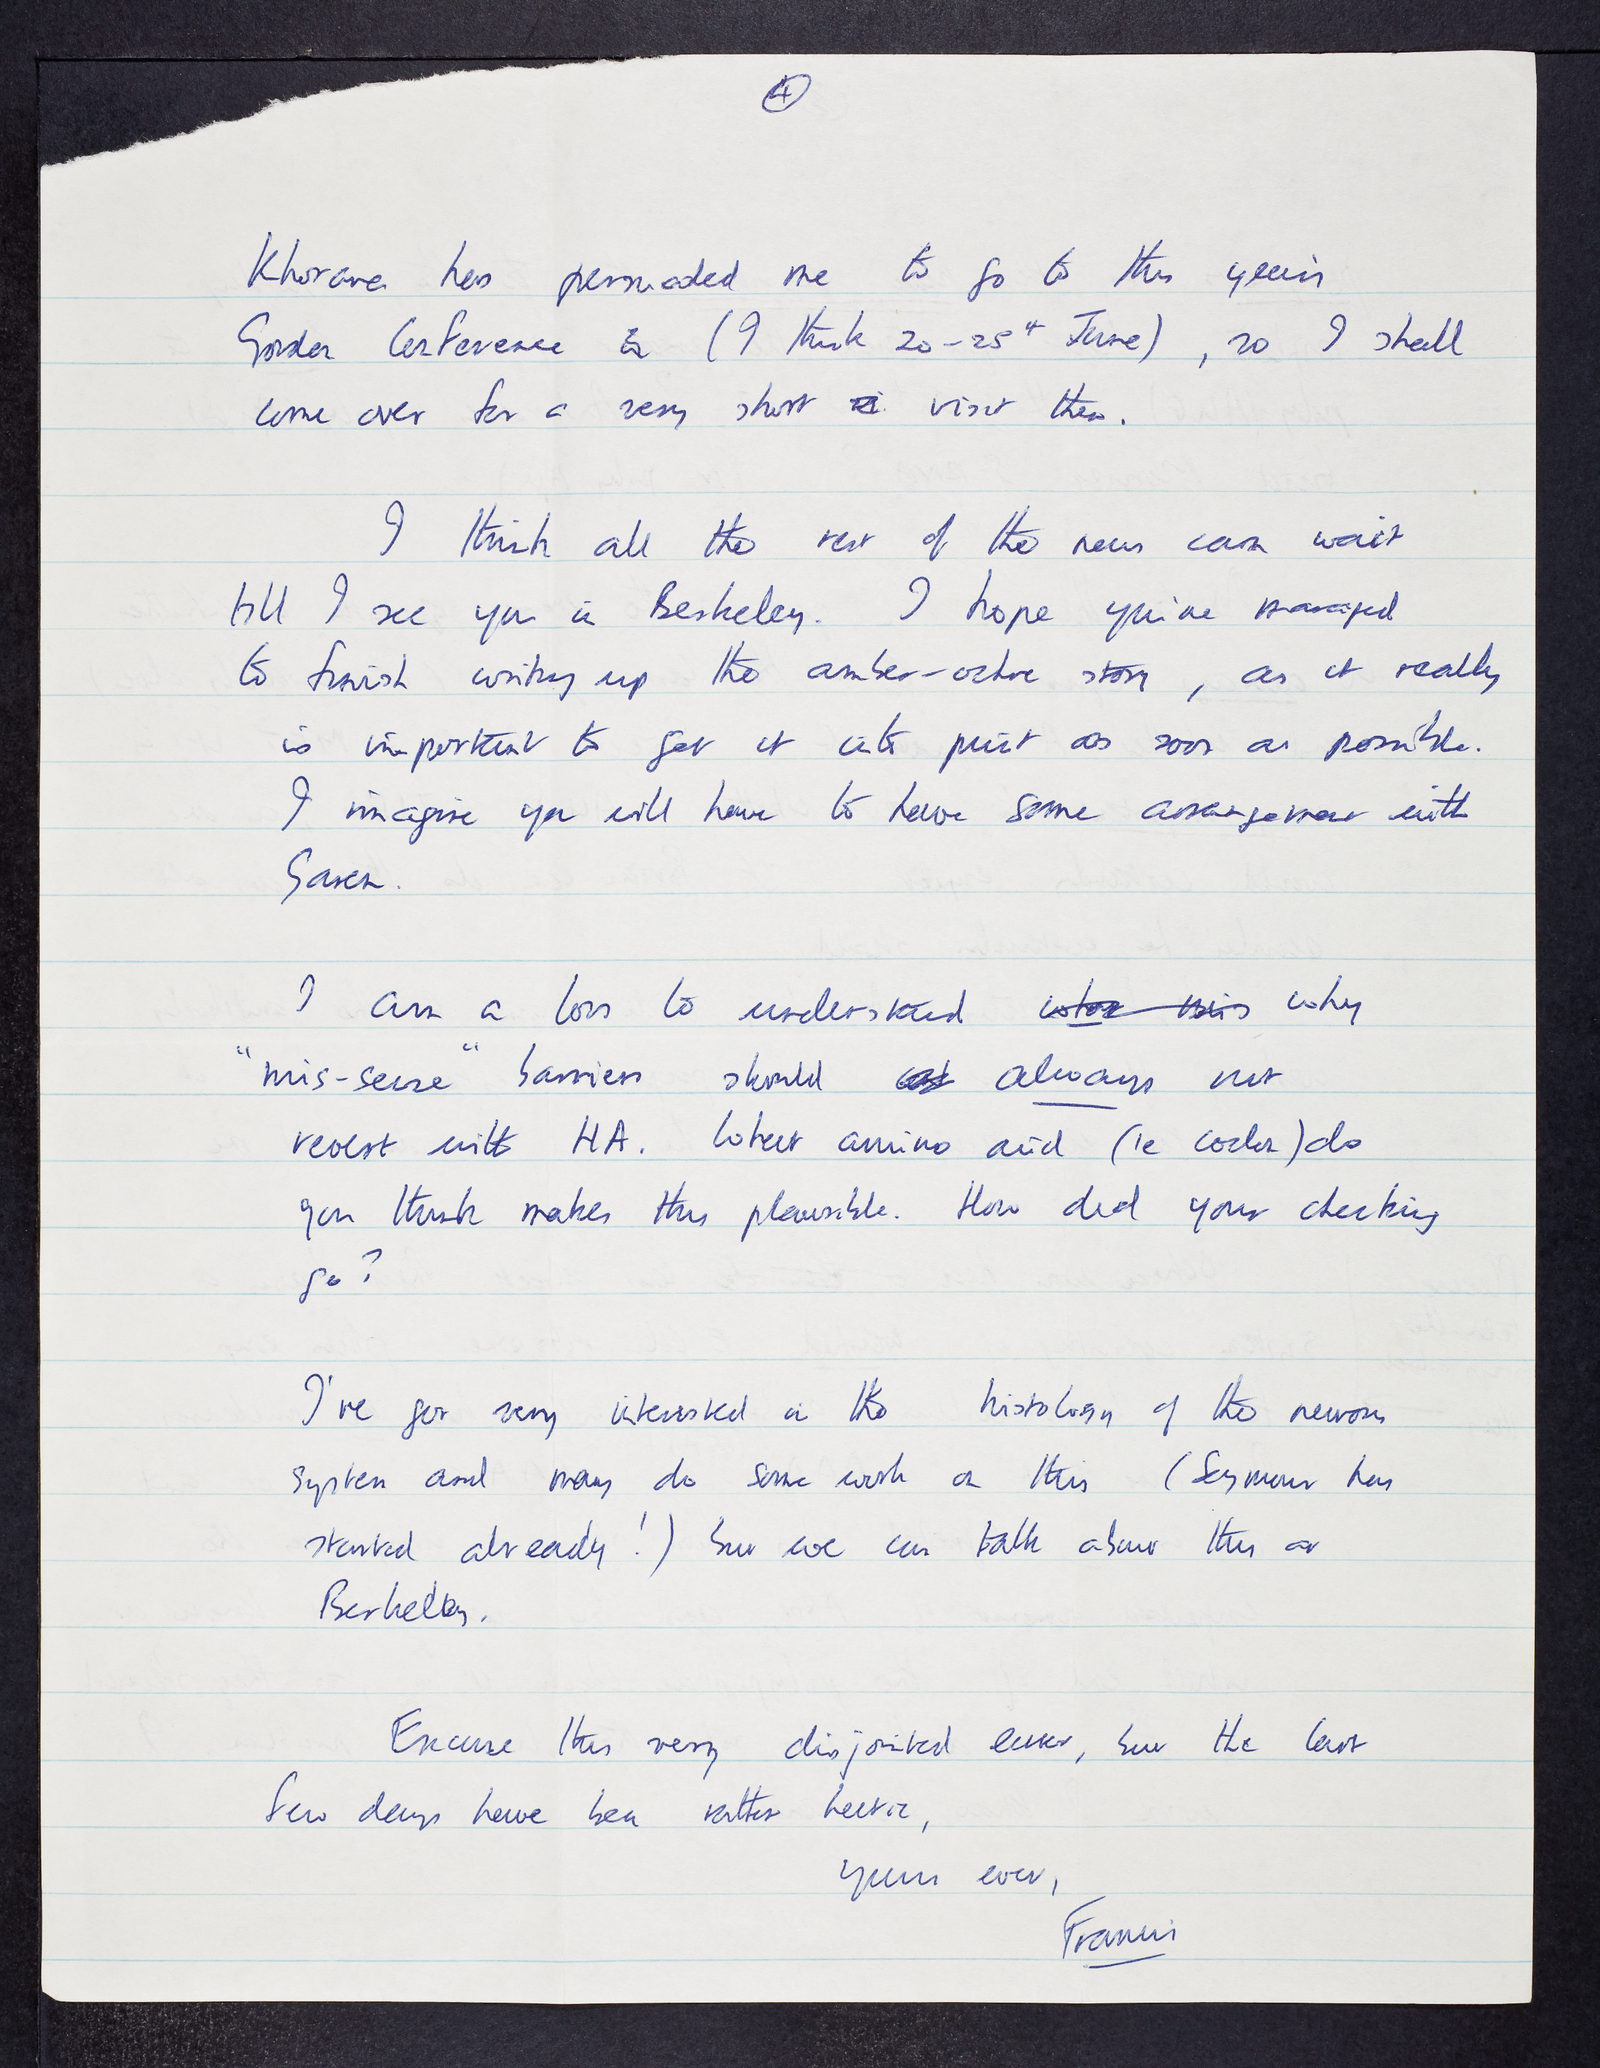 4
Khorana has persuaded me to go to this year's
Gordon Conference (I think 20-25th June), so I shall
come over for a very short visit then.
I think all the rest of the news can wait
till I see you in Berkeley. I hope you've managed
to finish writing up the amber-ochre story, as it really
is important to get it into print as soon as possible.
I imagine you will have to have some arrangement with
Garen.
I am a loss to understand why
"mis-sense" barriers should always not
revert with HA. What amino acid (ie codon) do
you think makes this plausible. How did your checking
go?
I've got very interested in the histology of the nervous
system and may do some work on this (Seymour has
started already!) but we can talk about this at
Berkeley.
Excuse this very disjointed letter, but the last
few days have been rather hectic,
yours ever,
Francis